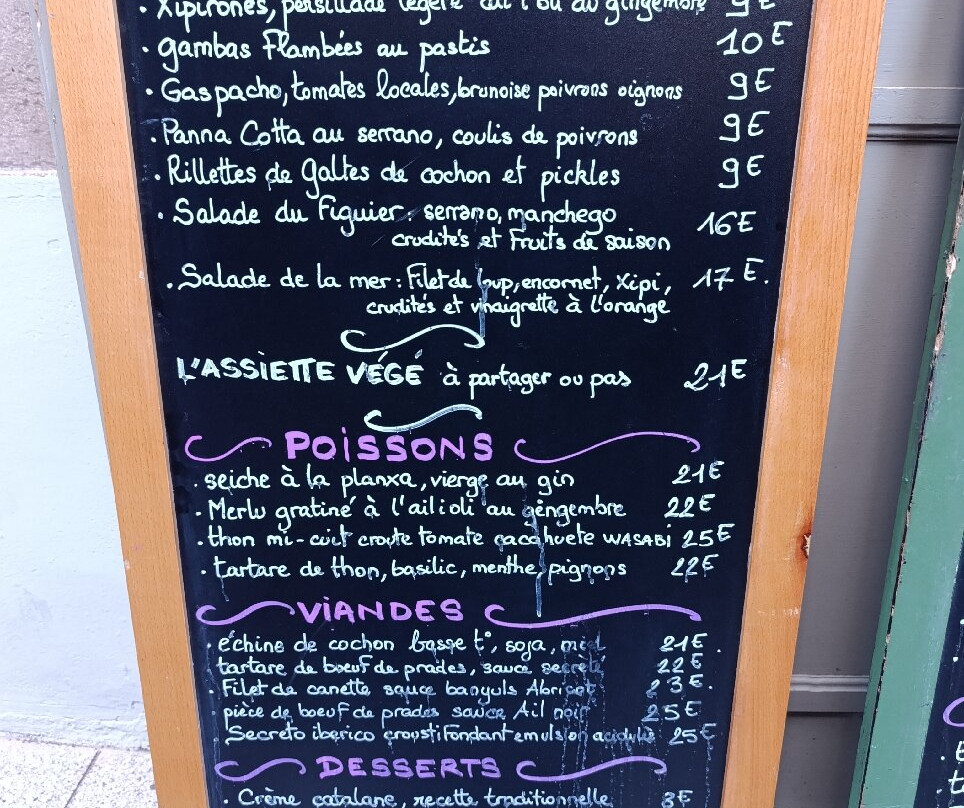 · Xipirones, persillade légère du gingembre 9€
· gambas Flambées au pastis 10€
· Gaspacho, tomates locales, brunoise poivrons oignons 9€
· Panna Cotta au serrano, coulis de poivrons 9€
· Rillettes de Galtes de cochon et pickles 9€
· Salade du Figuier: serrano, manchego 16€
crudités et Fruits de saison
· Salade de la mer: Filet de loup, encornet, Xipi, 17€.
crudités et vinaigrette à l'orange
L'ASSIETTE VÉGÉ à partager ou pas 21€
POISSONS
· seiche à la planxa, vierge au gin 21€
· Merlu gratiné à l'ailioli au gengembre 22€
· thon mi-cuit croute tomate cacahuete WASABI 25€
· tartare de thon, basilic, menthe, pignons 22€
VIANDES
· échine de cochon basse t°, soja, miel 21€.
· tartare de boeuf de prades, sauce secrète 22€
· Filet de canette sauce banyuls Abricot 23€.
· pièce de boeuf de prades sauce Ail noir 25€
· Secreto iberico croustifondant emulsion acidulée 25€
DESSERTS
· Crème catalane, recette traditionnelle 8€